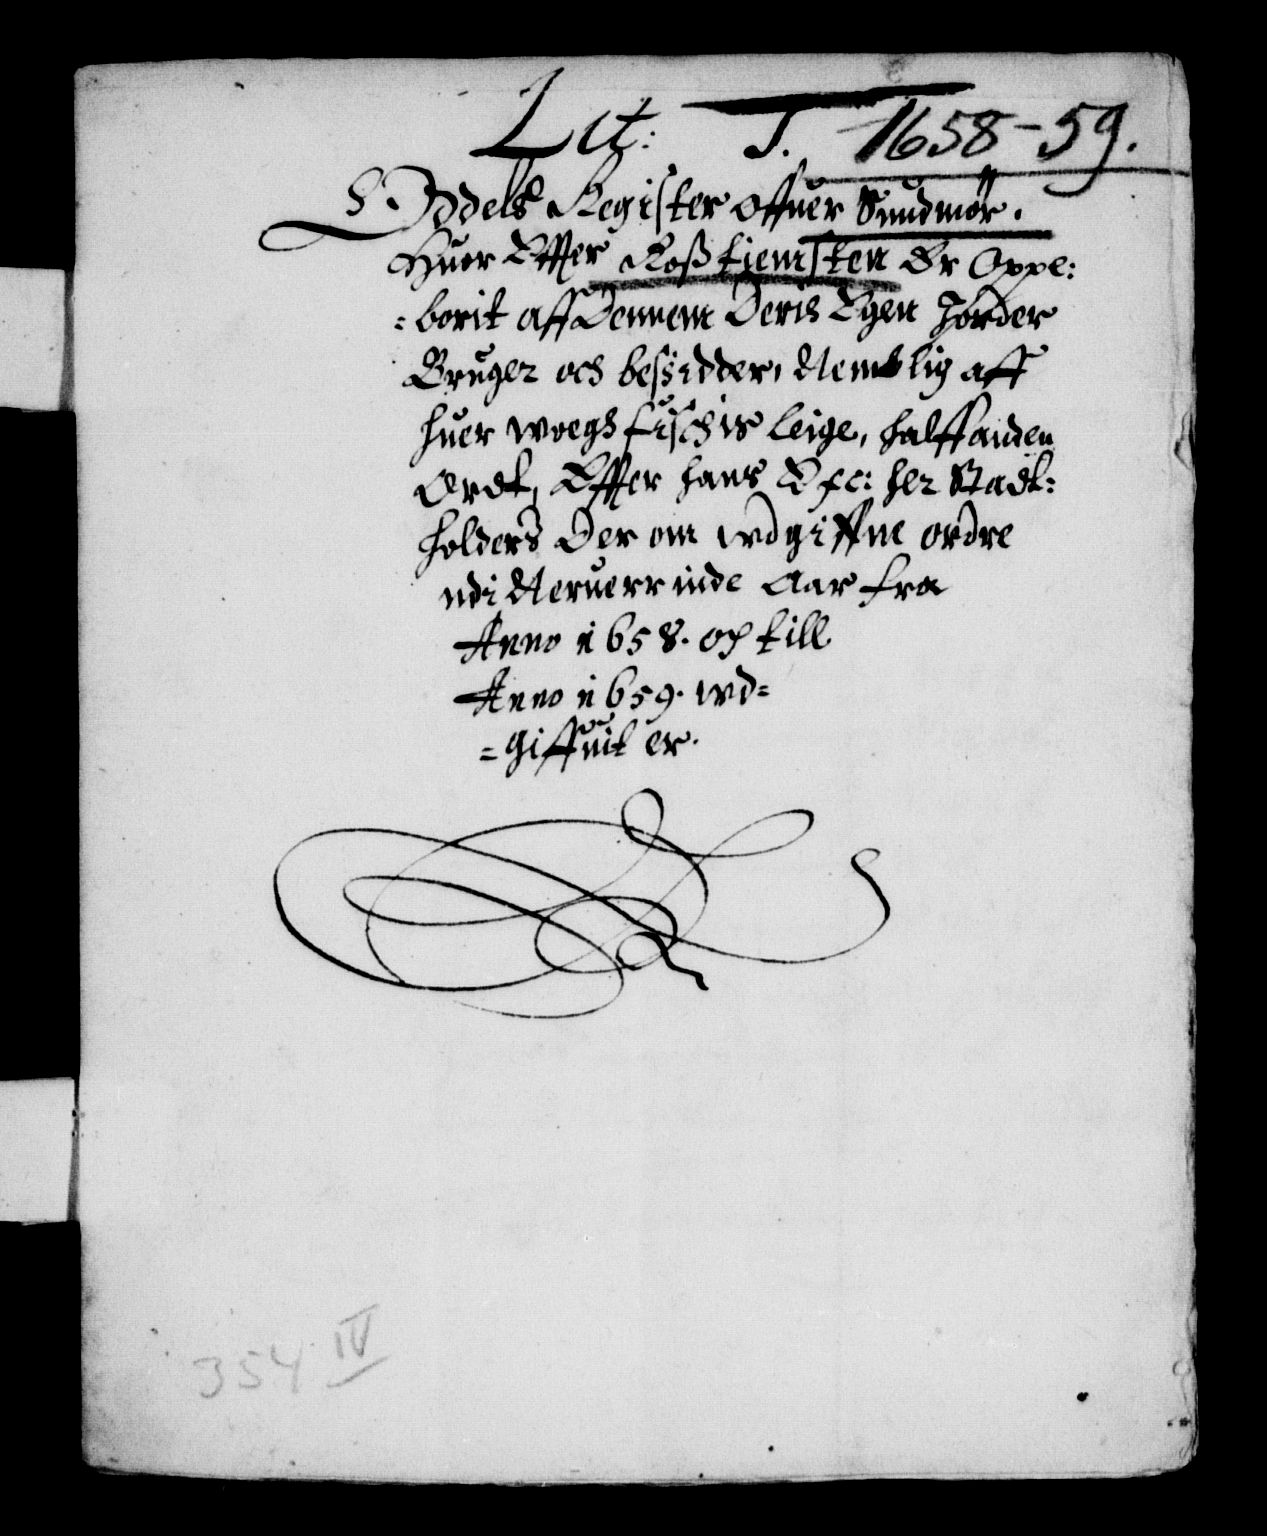 Lit: J. 1658-59.
Oddels Register offuer Sundmør.
Huer Effter Roßtienisten Er Oppe:
=borit aff Dennem Deris Egen Jorder
Bruger och besidder, Nemblig aff
huer woegs fischis leige, halffanden
Ordt, Effter hans Exc: her Stadt:
holders Der om wdgiffne ordre
udi Neruerrinde Aar fra
Anno 1658. och till
Anno 1659. wd=
=giffuit er.
354 IV